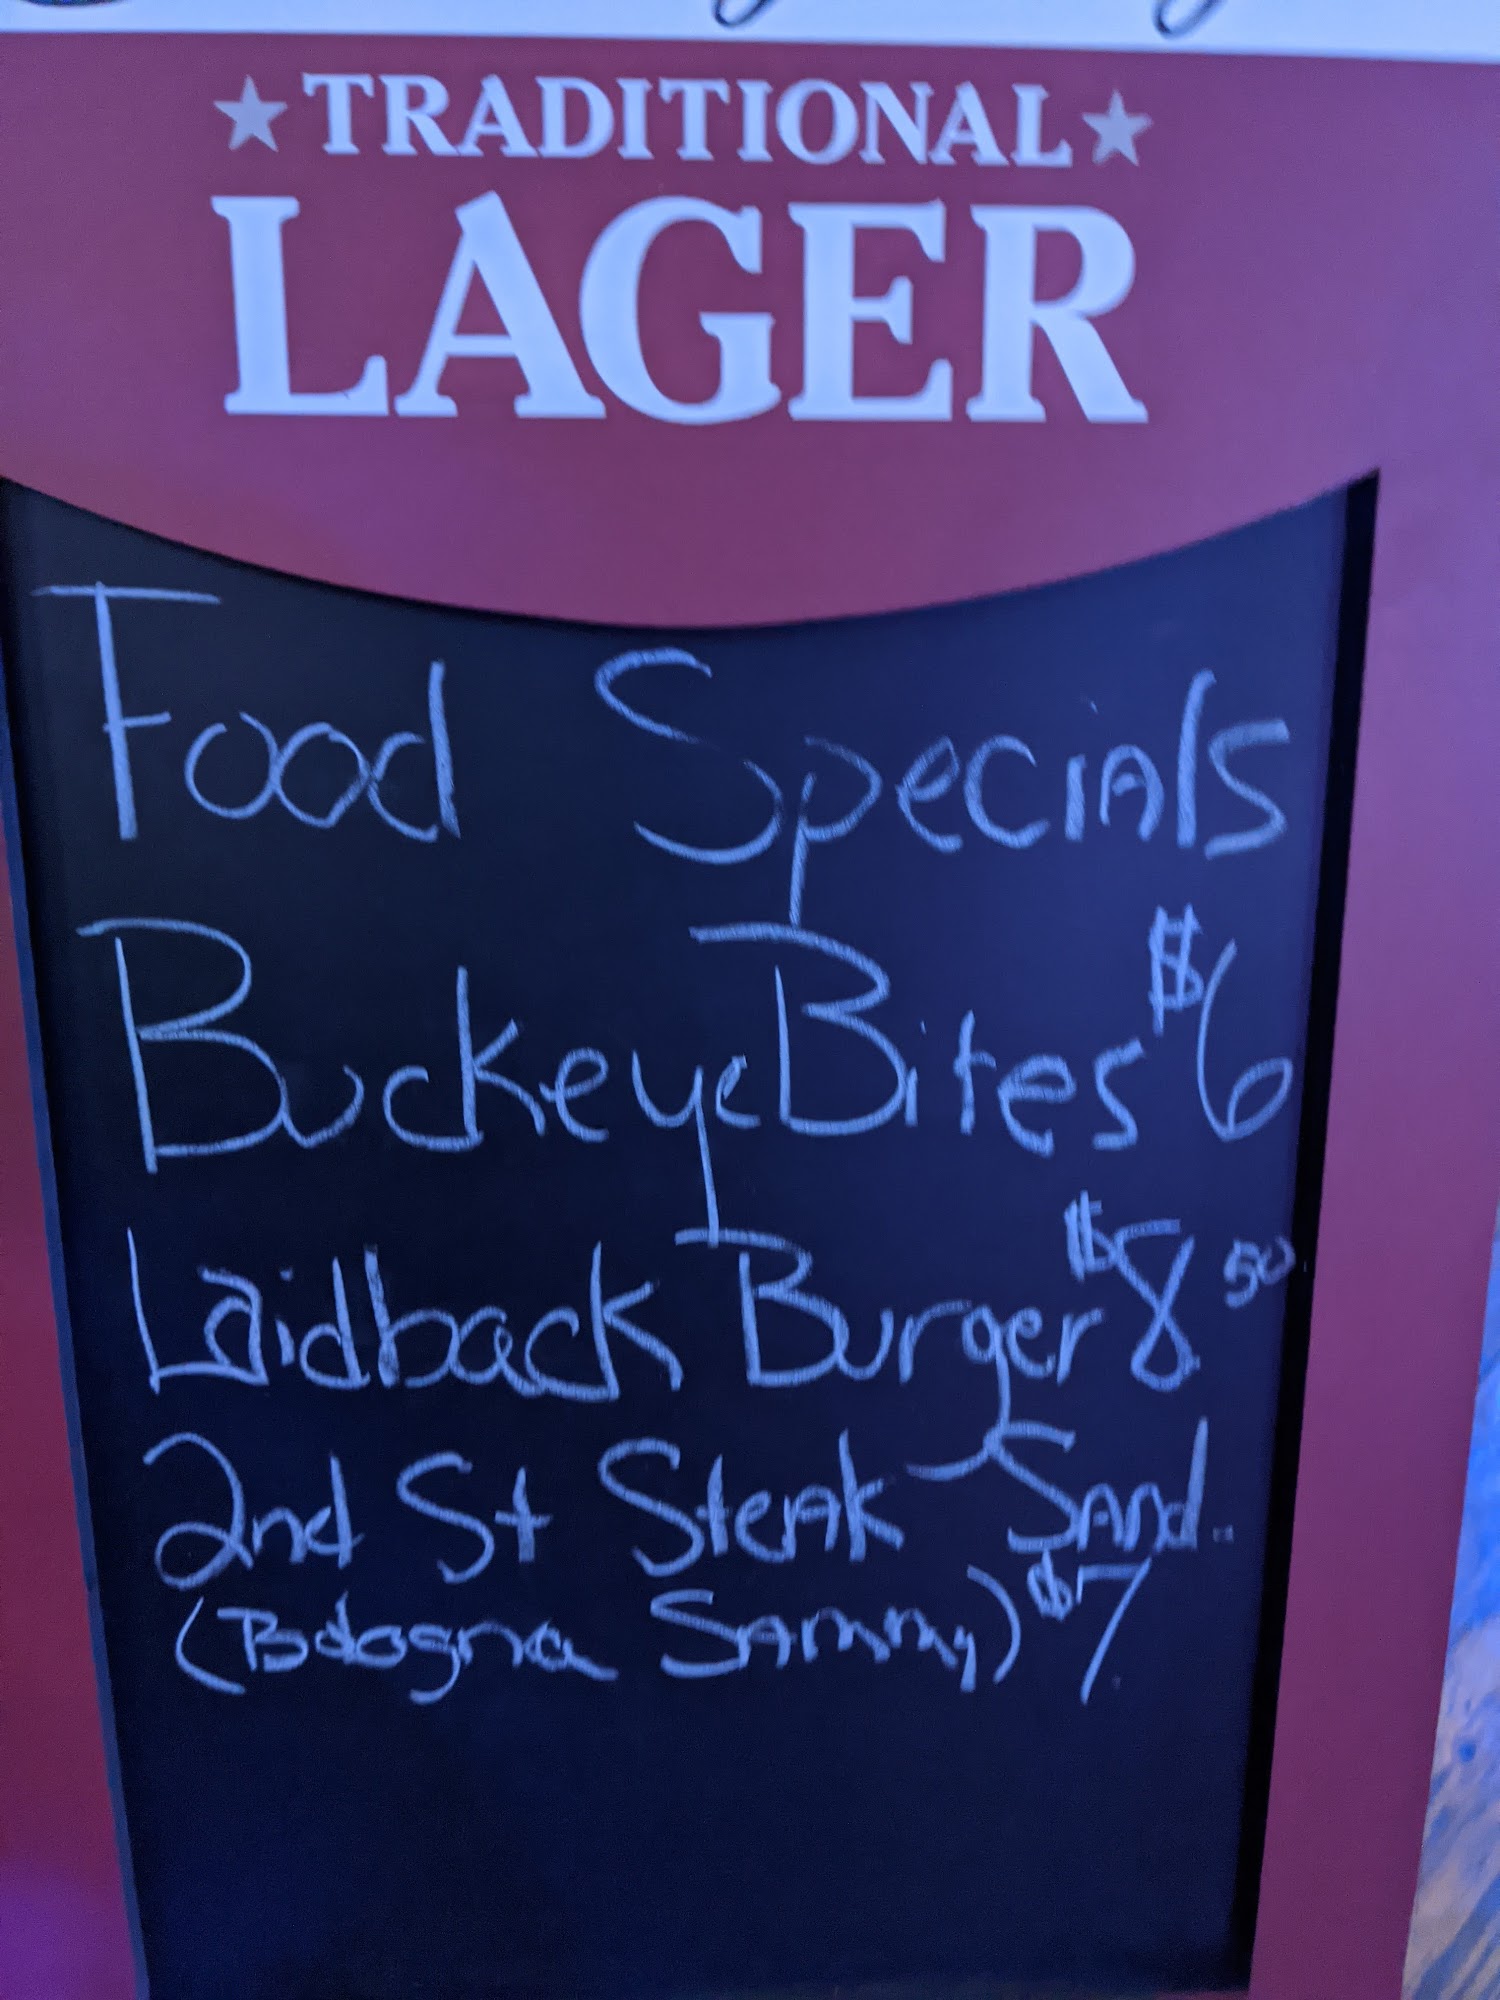 ★TRADITIONAL★
LAGER
Food Specials
Buckeye Bites $6
Laidback Burger $8 50
2nd St Steak Sand.
(Bologna Sammy) $7